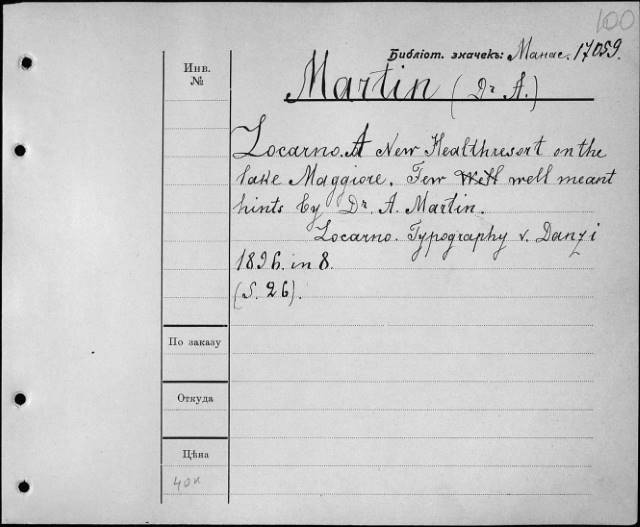 100
Библіот. значекъ: Манас. 17059.
Инв.
№
Martin (Dr A.)
Locarno. A New Healthresort on the
lake Maggiore. Few well meant
hints by Dr. A. Martin.
Locarno. Typography v. Danzi
1896. in 8.
(S. 26).
По заказу
Откуда
Цѣна
40к